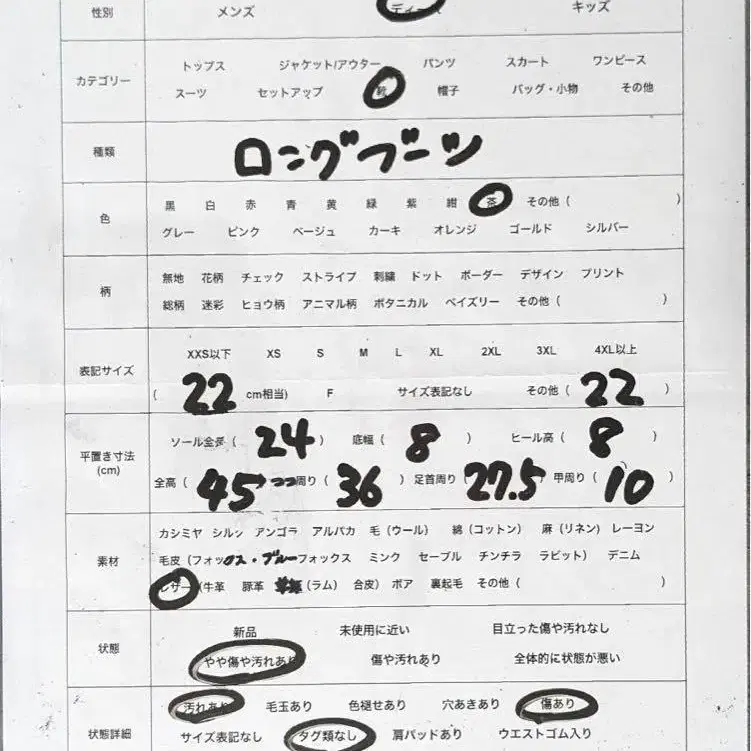 性別 メンズ レディース キッズ
カテゴリー
トップス ジャケット/アウター パンツ スカート ワンピース
スーツ セットアップ 靴 帽子 バッグ・小物 その他
種類 ロングブーツ
色
黒 白 赤 青 黄 緑 紫 紺 茶 その他 ( )
グレー ピンク ベージュ カーキ オレンジ ゴールド シルバー
柄
無地 花柄 チェック ストライプ 刺繍 ドット ボーダー デザイン プリント
総柄 迷彩 ヒョウ柄 アニマル柄 ボタニカル ペイズリー その他 ( )
表記サイズ
XXS以下 XS S M L XL 2XL 3XL 4XL以上
( 22 cm相当) F サイズ表記なし その他 ( 22 )
平置き寸法
(cm)
ソール全長 ( 24 ) 底幅 ( 8 ) ヒール高 ( 8 )
全高 ( 45 周り ( 36 ) 足首周り ( 27.5 甲周り ( 10 )
素材
カシミヤ シルク アンゴラ アルパカ 毛 (ウール) 綿 (コットン) 麻 (リネン) レーヨン
毛皮 (フォックス・ブルーフォックス ミンク セーブル チンチラ ラビット) デニム
レザー (牛革 豚革 (ラム) 合皮) ボア 裏起毛 その他 ( )
状態
新品 未使用に近い 目立った傷や汚れなし
やや傷や汚れあり 傷や汚れあり 全体的に状態が悪い
状態詳細
汚れあり 毛玉あり 色褪せあり 穴あきあり 傷あり
サイズ表記なし タグ類なし 肩パッドあり ウエストゴム入り